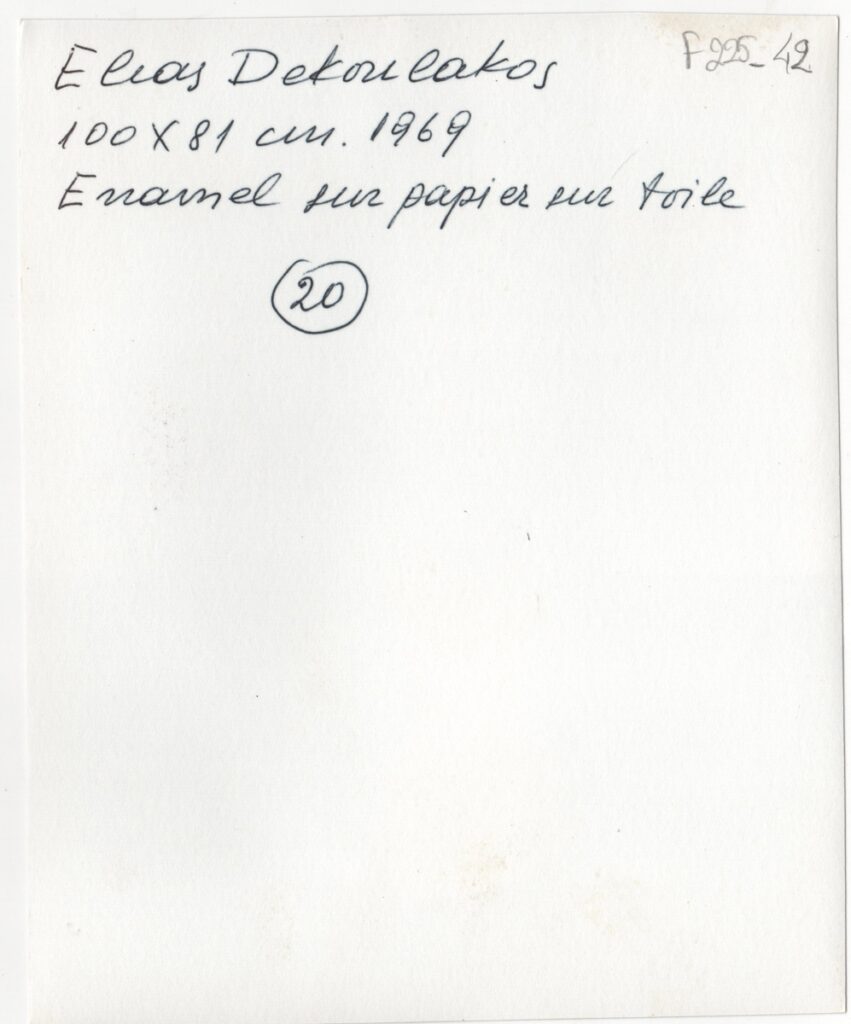 Elias Dekoulakos
F225-42
100 X 81 cm. 1969
Enamel sur papier sur toile
20